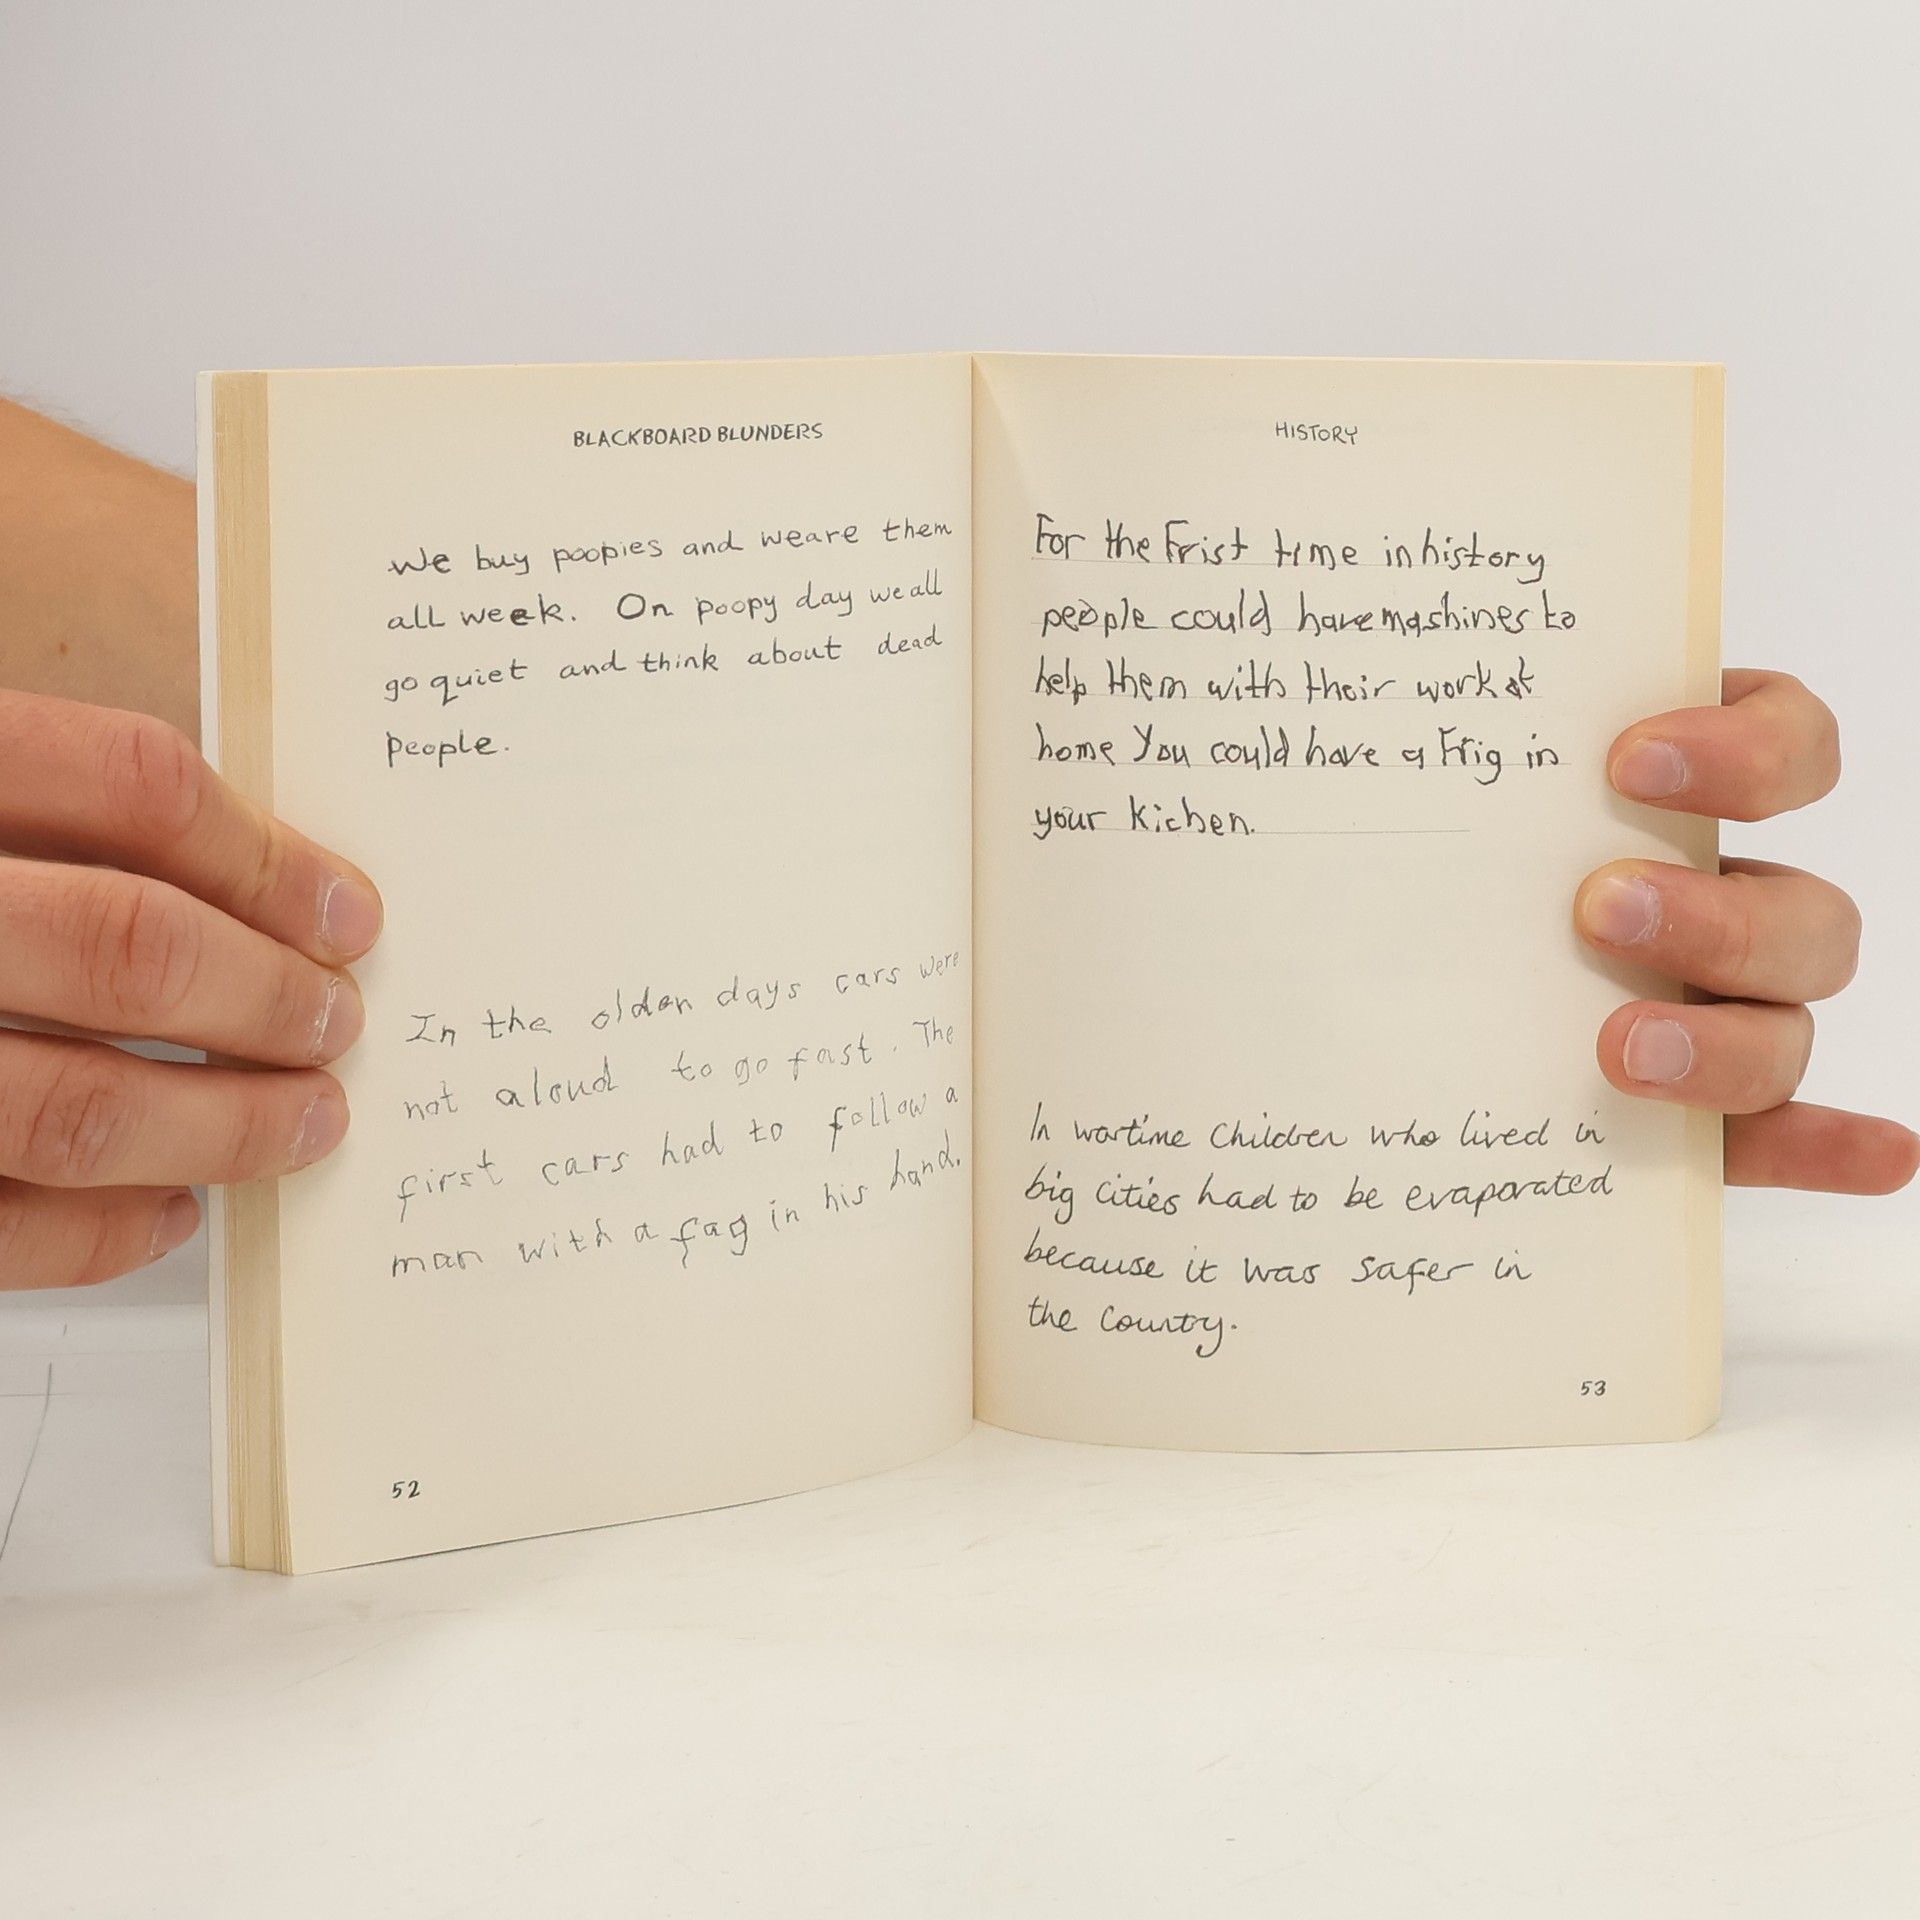 BLACKBOARD BLUNDERS
We buy poopies and weare them
all week. On poopy day we all
go quiet and think about dead
people.
In the olden days cars were
not aloud to go fast. The
first cars had to follow a
man with a fag in his hand.
52
HISTORY
For the Frist time in history
people could have mashines to
help them with their work at
home You could have a Frig in
your kichen.
In wartime Children who lived in
big cities had to be evaporated
because it was safer in
the Country.
53